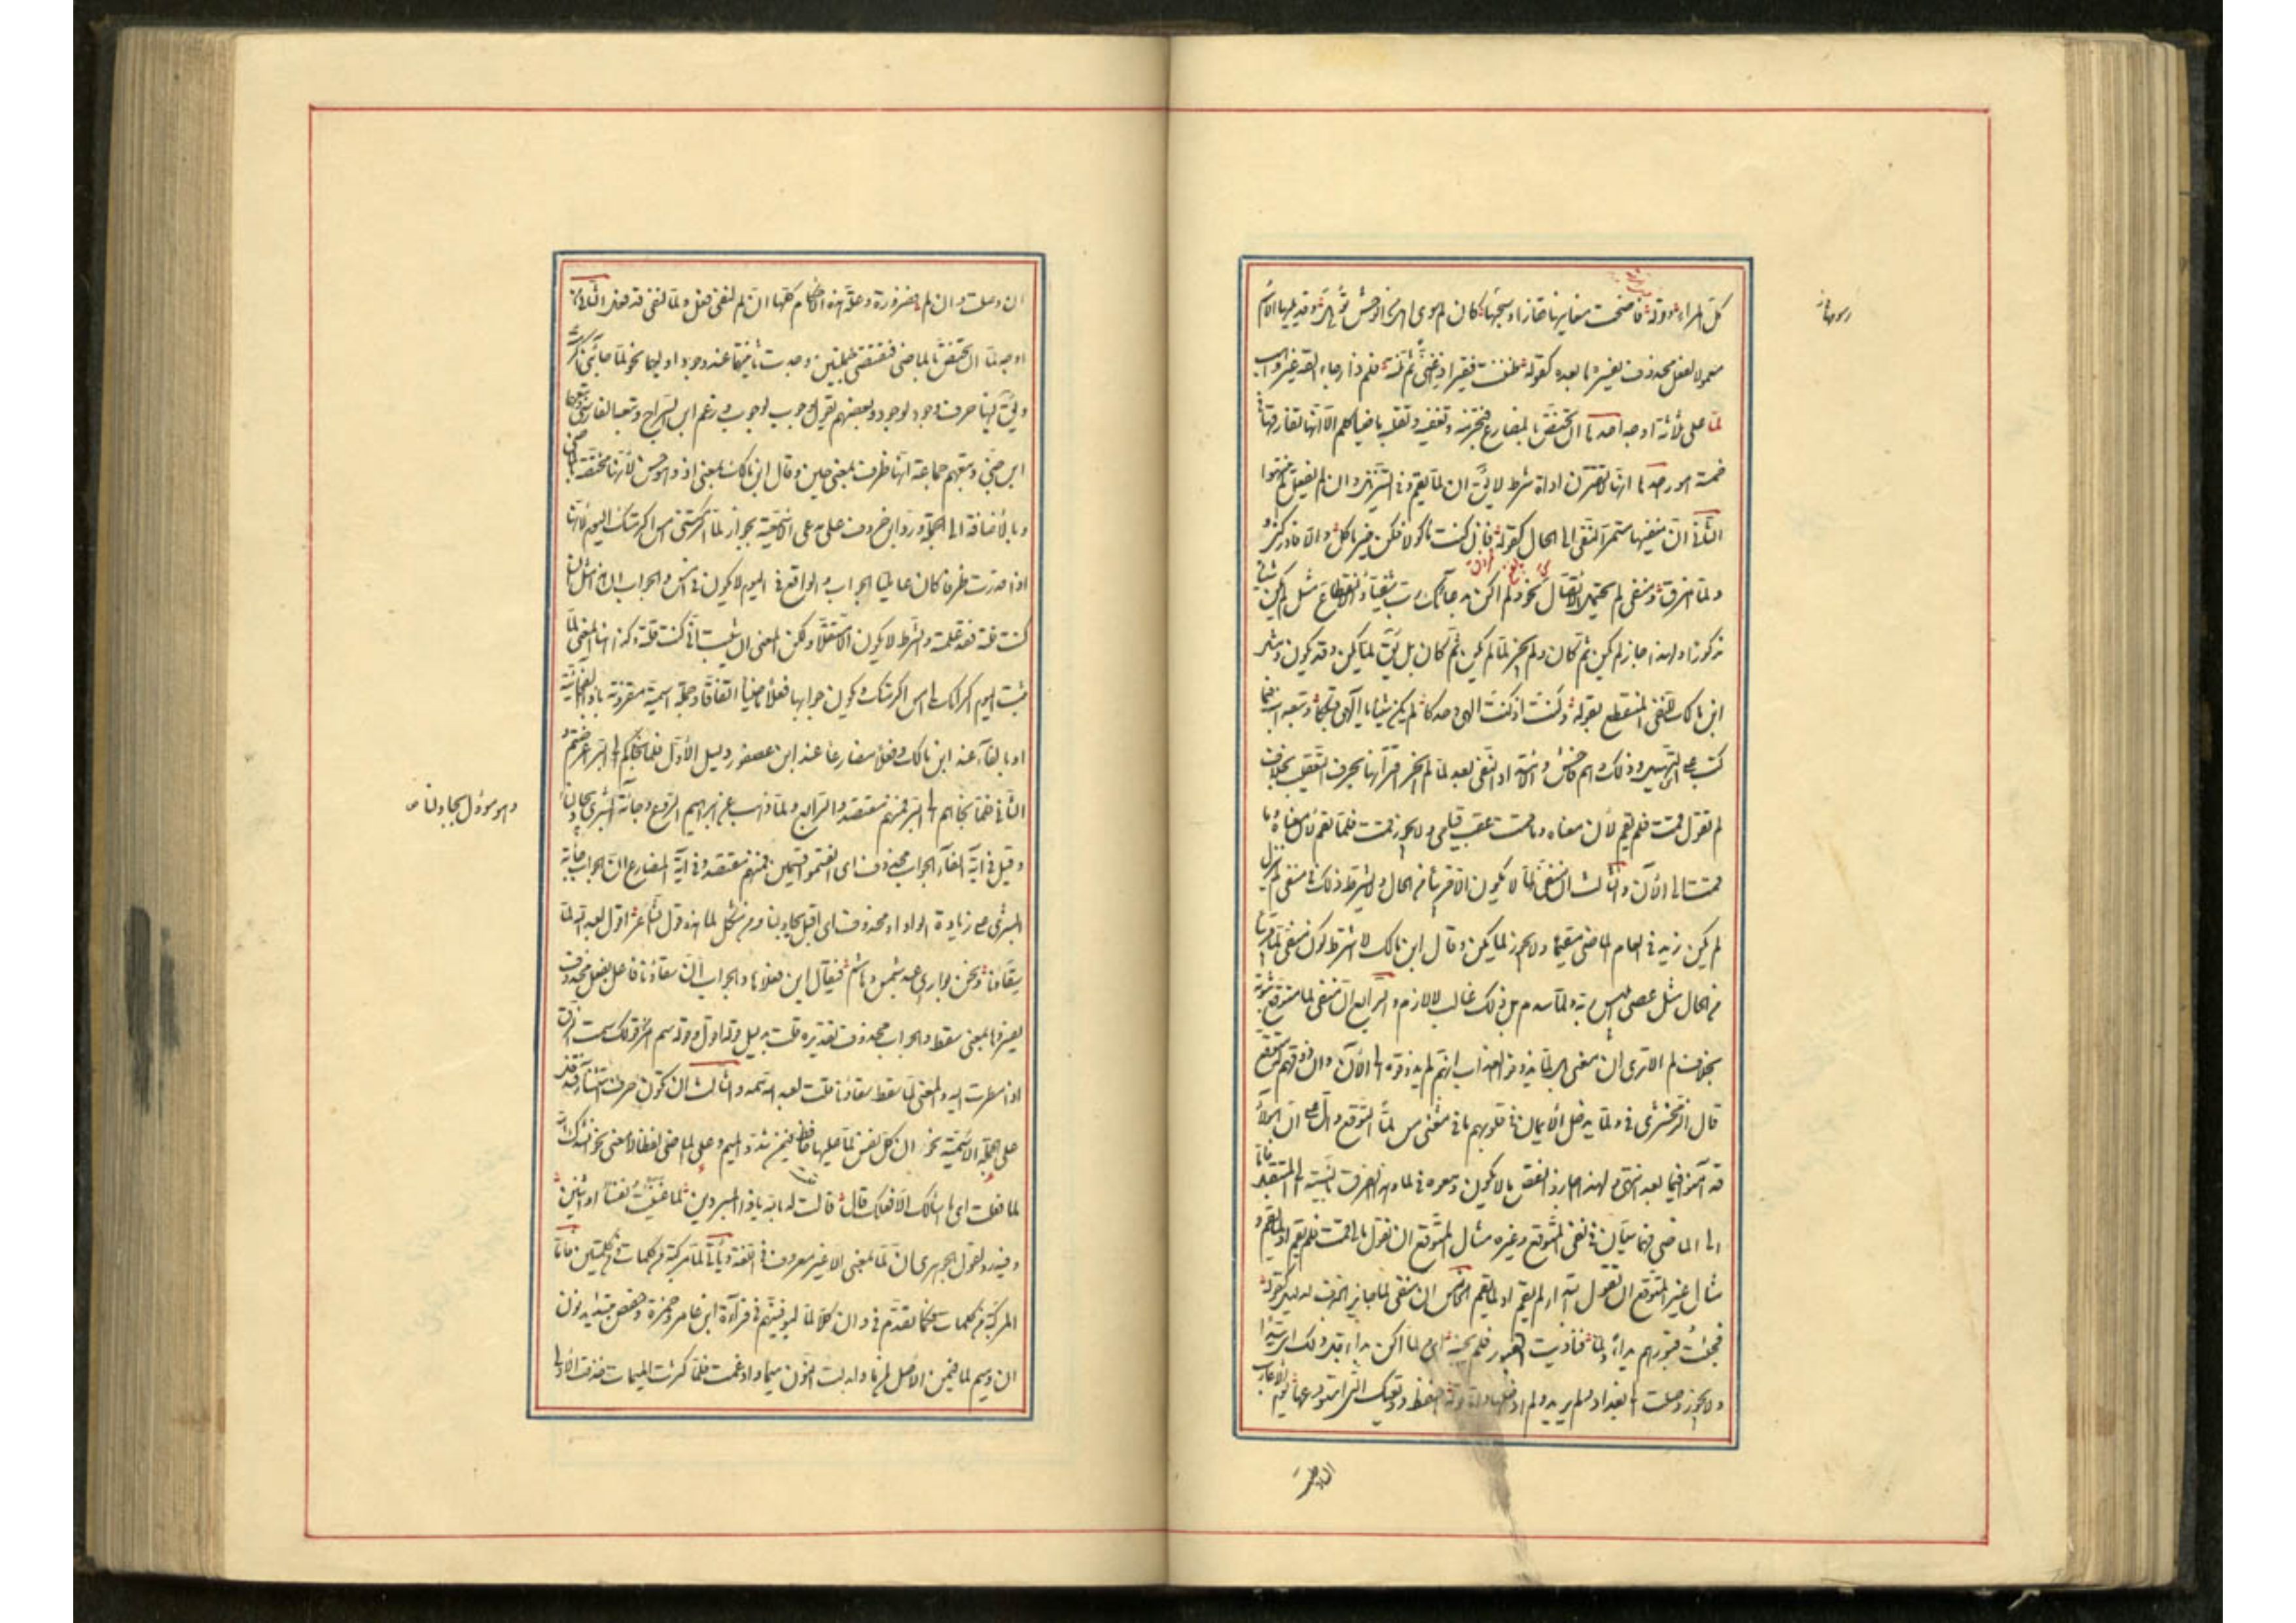 كل المراء وقوله فاضحت مغانيها قفارا رسومها كان لم سوى اهل من الوحش تؤهل وقد يليها الاسم
معمولا لفعل محذوف يفسره ما بعده كقوله ظننت فقيرا ذا غنى ثم نلته فلم ذا رجاء القه غير واهب
لما على ثلاثة اوجه احدها ان تختص بالمضارع فتجزمه وتنفيه وتقلبه ماضيا كلم الا انها تفارقها في
خمسة امور احدها انها لا تقترن باداة شرط لا يق ان لما يقم وفي التنزيل وان لم يفعل وان لم ينتهوا
الثاني ان منفيها مستمر النفي الى الحال كقوله فان كنت ماكولا فكن خير اكل والا فادركني و
لما امزق ومنفي لم يحتمل الاتصال نحو ولم اكن بدعائك رب شقيا والانقطاع مثل لم يكن شيئا
مذكورا ولهذا جاز لم يكن ثم كان ولم يجز لما يكن ثم كان بل يق لما يكن وقد يكون ومثل
ابن مالك للنفي المنقطع بقوله وكنت اذ كنت الهى وحدكا لم يكن شئ يا الهى قبلكا وتبعه ابنه فيما
كتب على التسهيل وذلك وهم فاحش ولامتداد النفي بعد لما لم يجز اقترانها بحرف التعقيب بخلاف
لم تقول قمت فلم تقم لان معناه وما قمت عقيب قيامي ولا يجوز قمت فلما تقم لان معناه وما
قمت الى الآن والثالث ان منفي لما لا يكون الا قريبا من الحال ولا يشترط ذلك في منفي لم تقول
لم يكن زيد في العام الماضي مقيما ولا يجوز لما يكن وقال ابن مالك لا يشترط كون منفي لما قريبا
من الحال مثل عصى ابليس ربه ولما يندم بل ذلك غالب لا لازم والرابع ان منفي لما متوقع ثبوته
بخلاف لم الا ترى ان معنى بل لما يذوقوا العذاب انهم لم يذوقوه الى الآن وان ذوقهم له متوقع
قال الزمخشري في ولما يدخل الايمان في قلوبكم ما في لما من معنى التوقع دال على ان هؤلاء
قد آمنوا فيما بعد انتهى ولهذا اجازوا لم يقض ما لا يكون ومنعوه في لما وهذا الفرق بالنسبة الى المستقبل فاما
الى الماضي فهما سيان في نفي المتوقع وغيره مثال المتوقع ان تقول مالي قمت فلم تقم او ولما تقم و
مثال غير المتوقع ان تقول ابتداء لم يقم او لما يقم الخامس ان منفي لما جائز الحذف لدليل كقوله
فجئت قبورهم بداء ولما فناديت القبور فلم يجبنه اي ولما اكن بداء قبل ذلك اي سيدا
ولا يجوز وصلت الى بغداد ولم يريد ولم ادخلها فاما قوله احفظ وديعتك التي استودعتها يوم الاعازب
ان وصلت وان لم فضرورة وعلة هذه الاحكام كلها ان لم لنفي فعل ولما لنفي قد فعل الثاني من
اوجه لما ان تختص بالماضي فتقتضي جملتين وجدت ثانيتهما عند وجود اوليهما نحو لما جائني اكرمته
ويق فيها حرف وجود لوجود وبعضهم يقول وجوب لوجوب وزعم ابن السراج وتبعه الفارسي وتبعهما
ابن جني وتبعهم جماعة انها ظرف بمعنى حين وقال ابن مالك بمعنى اذ وهو حسن لانها مختصة بالماضي
وبالاضافة الى الجملة ورد ابن خروف على مدعى الاسمية بجواز لما اكرمتني امس اكرمتك اليوم لانها
اذا قدرت ظرفا كان عاملها الجواب والواقع في اليوم لا يكون في امس والجواب ان هذا مثل ان
كنت قلته فقد علمته والشرط لا يكون الا مستقبلا ولكن المعنى ان ثبت اني كنت قلته وكذا هنا المعنى لما
ثبت اليوم اكرامك لي امس اكرمتك ويكون جوابها فعلا ماضيا اتفاقا وجملة اسمية مقرونة باذا الفجائية
او بالفاء عند ابن مالك وفعلا مضارعا عند ابن عصفور دليل الاول فلما نجاكم الى البر اعرضتم و
الثاني فلما نجاهم الى البر فمنهم مقتصد والرابع ولما ذهب عن ابراهيم الروع وجائته البشرى يجادلنا
وهو مؤول بجادلنا ص
وقيل في آية الفاء الجواب محذوف اي انقسموا قسمين فمنهم مقتصد وفي آية المضارع ان الجواب جائته
البشرى على زيادة الواو او محذوف اي اقبل يجادلنا ومن مشكل لما هذه قول الشاعر اقول لعبد الله لما
سقاؤنا ونحن بوادي عبد شمس وهاشم فيقال اين فعلاها والجواب ان سقاؤنا فاعل بفعل محذوف
يفسره وها بمعنى سقط والجواب محذوف تقديره قلت بدليل قوله اقول وقوله شم امر من قولك شمت البرق
اذا نظرت اليه والمعنى لما سقط سقاؤنا قلت لعبد الله شمه والثالث ان تكون حرف استثناء فتدخل
على الجملة الاسمية نحو ان كل نفس لما عليها حافظ فيمن شدد الميم وعلى الماضي لفظا لا معنى نحو انشدك الله
لما فعلت اي ما اسالك الا فعلك قال قالت له بالله يا ذا البردين لما غنثت نفسا او اثنين
وفيه رد لقول الجوهري ان لما بمعنى الا غير معروف في اللغة وياتي لما مركبة من كلمات ومن كلمتين فاما
المركبة من كلمات فكما تقدم في وان كلا لما ليوفينهم في قراءة ابن عامر وحمزة وحفص بتشديد نون
ان وميم لما فيمن قال الاصل لمن ما فابدلت النون ميما وادغمت فلما كثرت الميمات حذفت الاولى